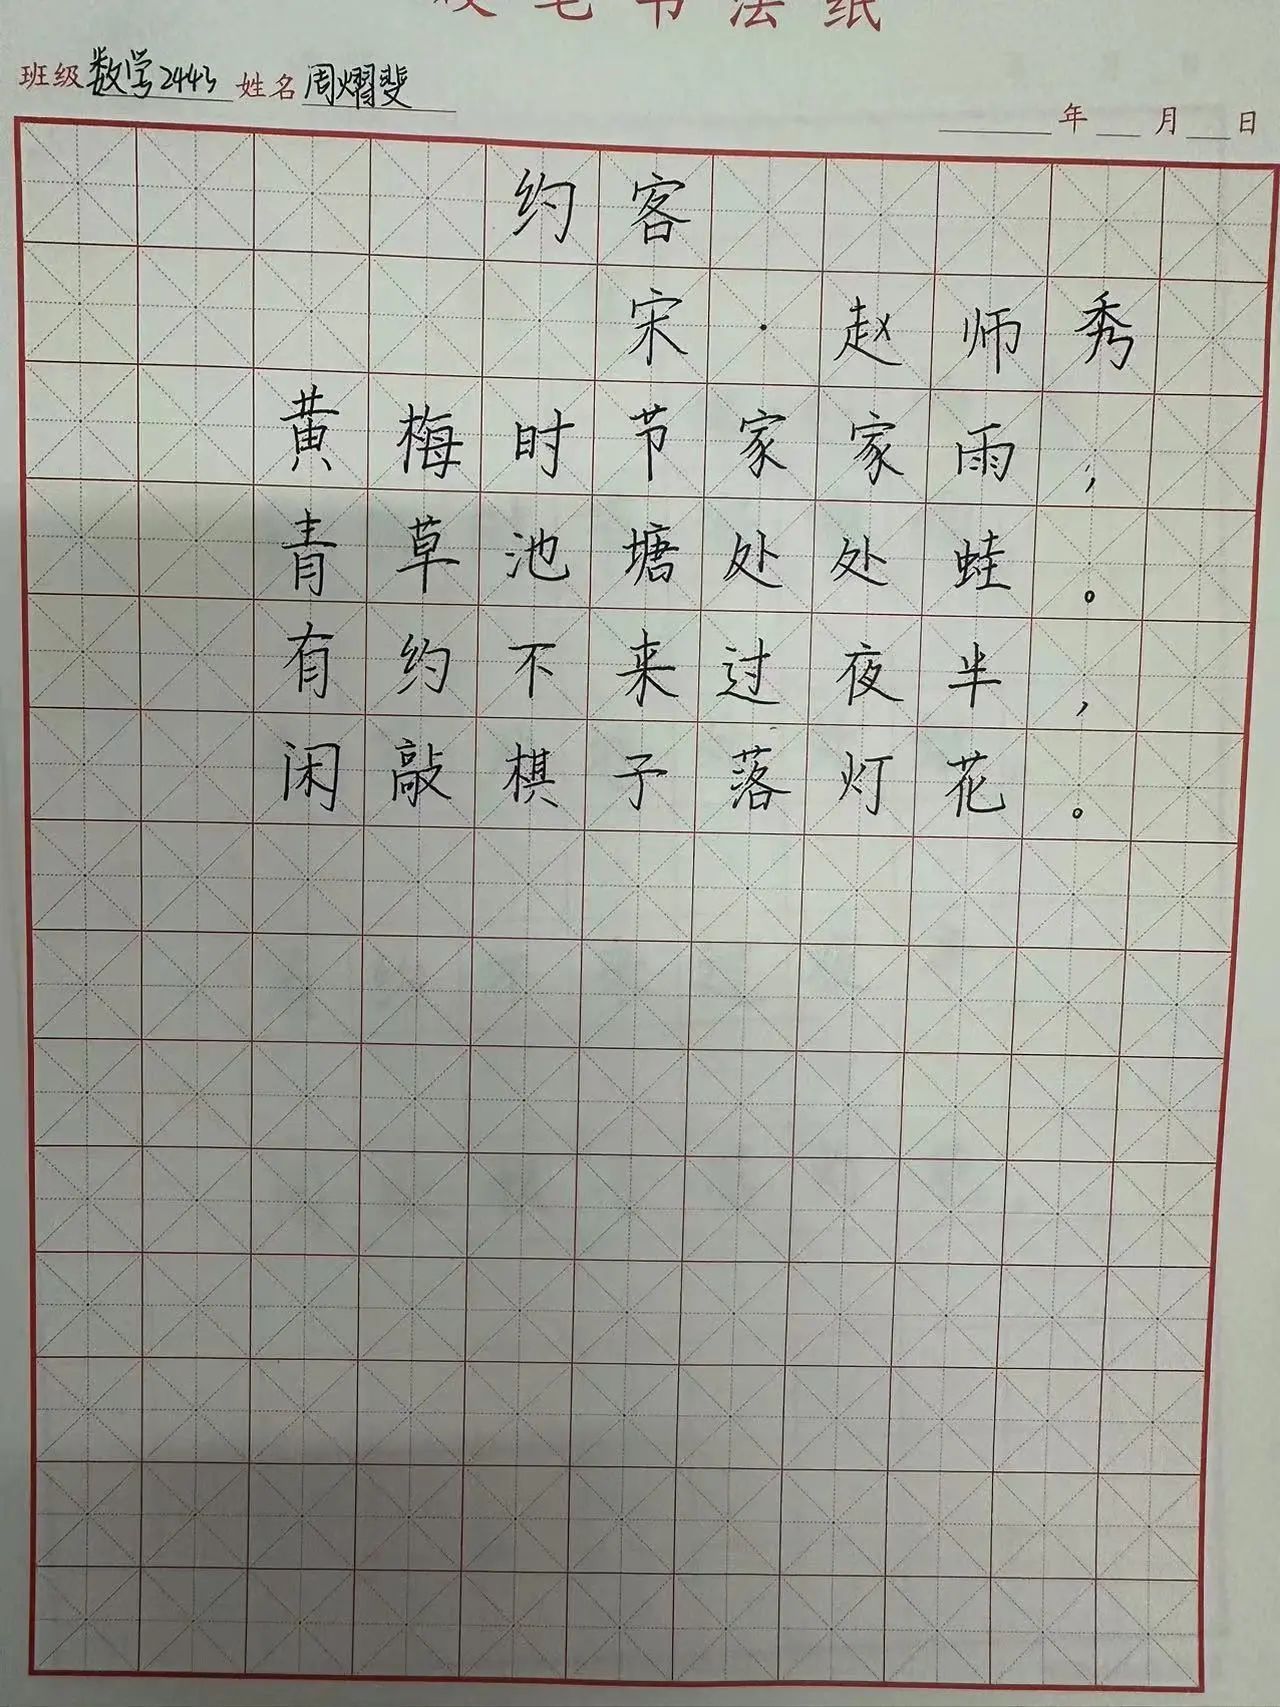 硬笔书法纸
班级 数学2443 姓名 周熠斐 年 月 日
约客
宋·赵师秀
黄梅时节家家雨，
青草池塘处处蛙。
有约不来过夜半，
闲敲棋子落灯花。